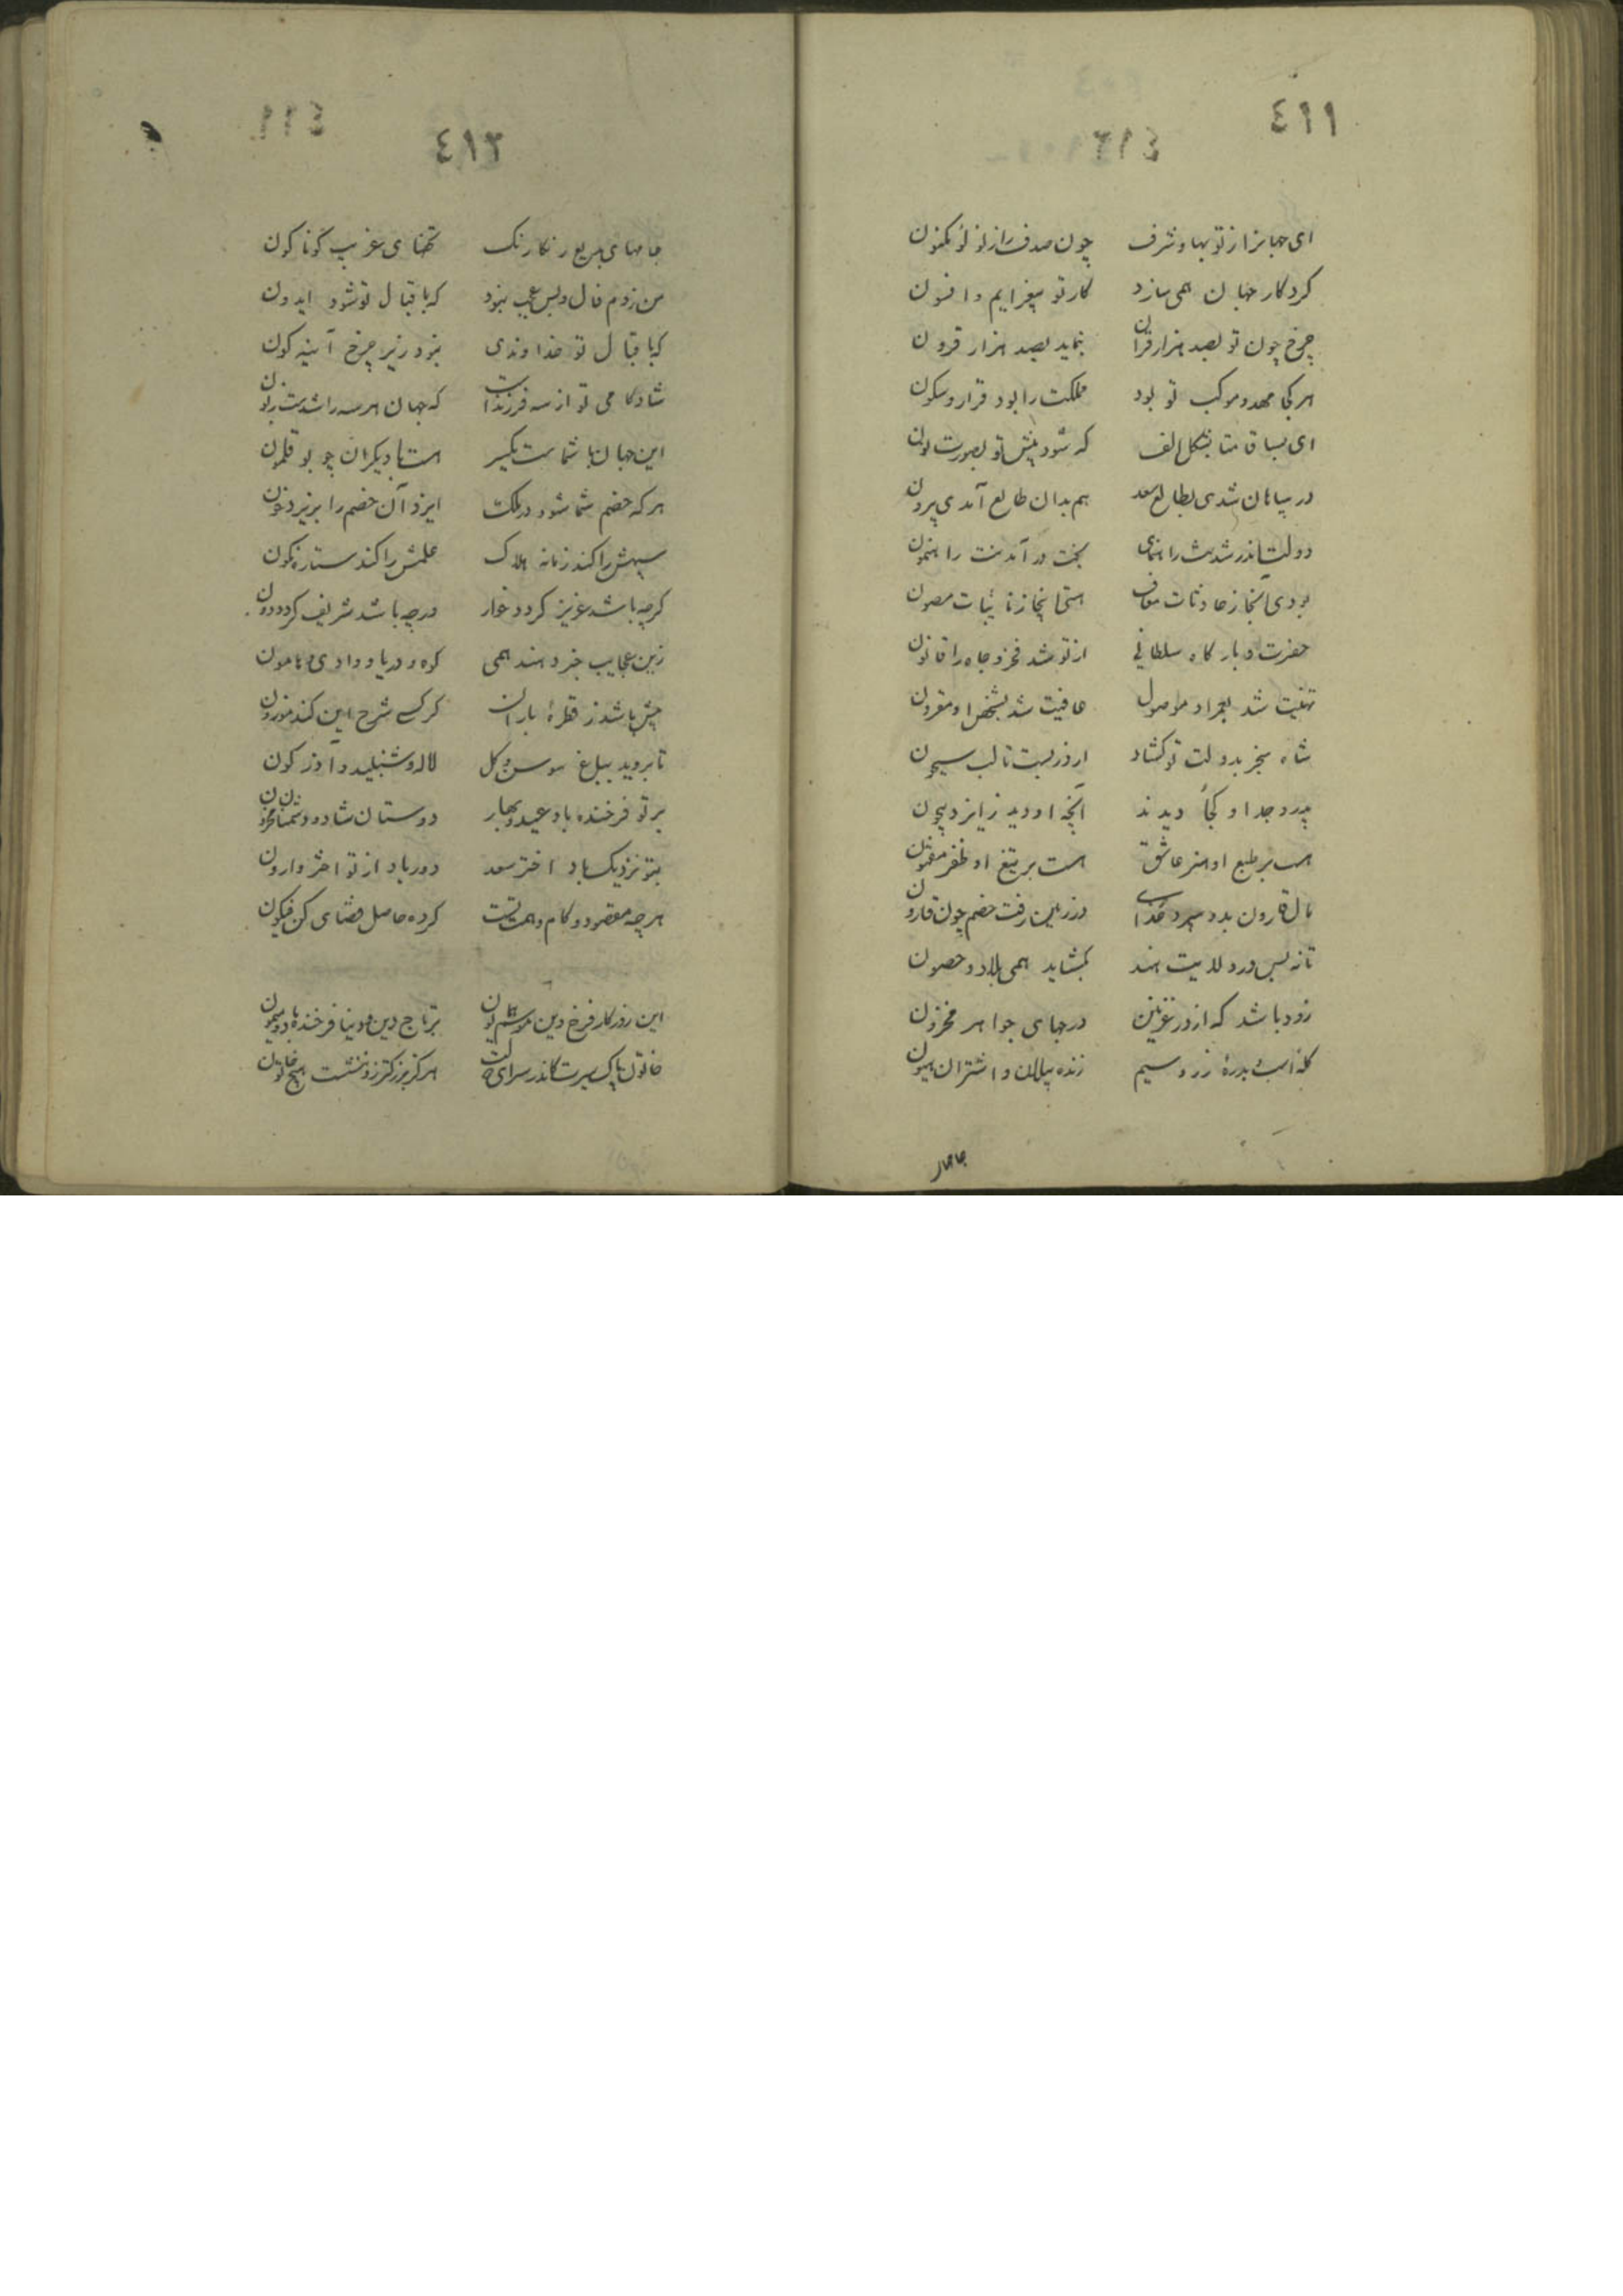 ٤١١
ای جهانرا از تو بها و شرف چون صدف را ز لؤلؤ مکنون
کردکار جهان همی سازد کار تو بیغرایم و افسون
چرخ چون تو بصد هزار قران نماید بصد هزار قرون
هر کجا مهد و موکب تو بود مملکت را بود قرار و سکون
ای بساق متا بشکل الف که شود پیش تو بصورت نون
در بیابان شدی بطالع سعد هم بدان طالع آمدی بیرون
دولت اندر شدنت راهنمای بخت در آمدنت راهنمون
بودی آنجا ز حادثات معاف استی اینجا ز نایبات مصون
حضرت و بارکاه سلطانی از تو شد فخر و جاه را قانون
تهنیت شد بعمر او موصول عافیت شد بشخص او مقرون
شاه سنجر بدولت تو کشاد از در بست تا لب سیحون
پدر و جد او کجا دیدند آنچه او دید ز ایزد بیچون
هست بر طبع او هنر عاشق هست بر تیغ او ظفر مفتون
مال قارون بدو سپرد خدای در زمین رفت خصم چون قارون
تا نه بس در ولایت هند بکشاید همی بلاد و حصون
زود باشد که از در غزنین درجهای جواهر مخزون
کله اسب و بدرهٔ زر و سیم زنده پیلان و اشتران هیون
جامها
٤١٢
جامهای بدیع رنکارنک تحفهای غریب کوناکون
من زدم فال و بس عجب نبود که باقبال تو شود ایدون
که باقبال تو خداوندی نبود زیر چرخ آینه کون
شادکامی تو از سه فرزندست که جهان هر سه را شدست زبون
این جهان با شماست یکسر هست با دیکران چو بوقلمون
هر که خصم شما شود در ملک ایزد آن خصم را بریزد خون
سپهش را کند زمانه هلاک علمش را کند ستاره نکون
کرچه باشد عزیز کردد خوار ورچه باشد شریف کردد دون
زین عجایب خبر دهند همی کوه و دریا و وادی و هامون
بیش باشد ز قطرهٔ باران کر کسی شرح این کند موزون
تا بروید بباغ سوسن و کل لاله و شنبلید و آذرکون
بر تو فرخنده باد عید و بهار دوستان شاد و دشمنان محزون
بتو نزدیک باد اختر سعد دور باد از تو اختر وارون
هر چه مقصود و کام و همت تست کرده حاصل قضای کن فیکون
این روزکار فرخ و این موسم همایون بر تاج دین و دنیا فرخنده باد و میمون
خاتون پاک سیرت کاندر سرای دولت هرکز بزرکتر زو ننشست هیچ خاتون